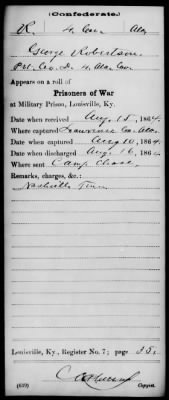 (Confederate.)
R 4 Cav. Ala
George Robertson
Pvt. Co. D. 4 Ala Cav.
Appears on a roll of
Prisoners of War
at Military Prison, Louisville, Ky.
Date when received Aug. 15, 1864.
Where captured Lawrence Co. Ala.
Date when captured Aug 10, 1864.
Date when discharged Aug. 16, 1864
Where sent Camp Chase
Remarks, charges, &c.:
Nashville Tenn
Louisville, Ky., Register No. 7; page
(639)
Copyist.